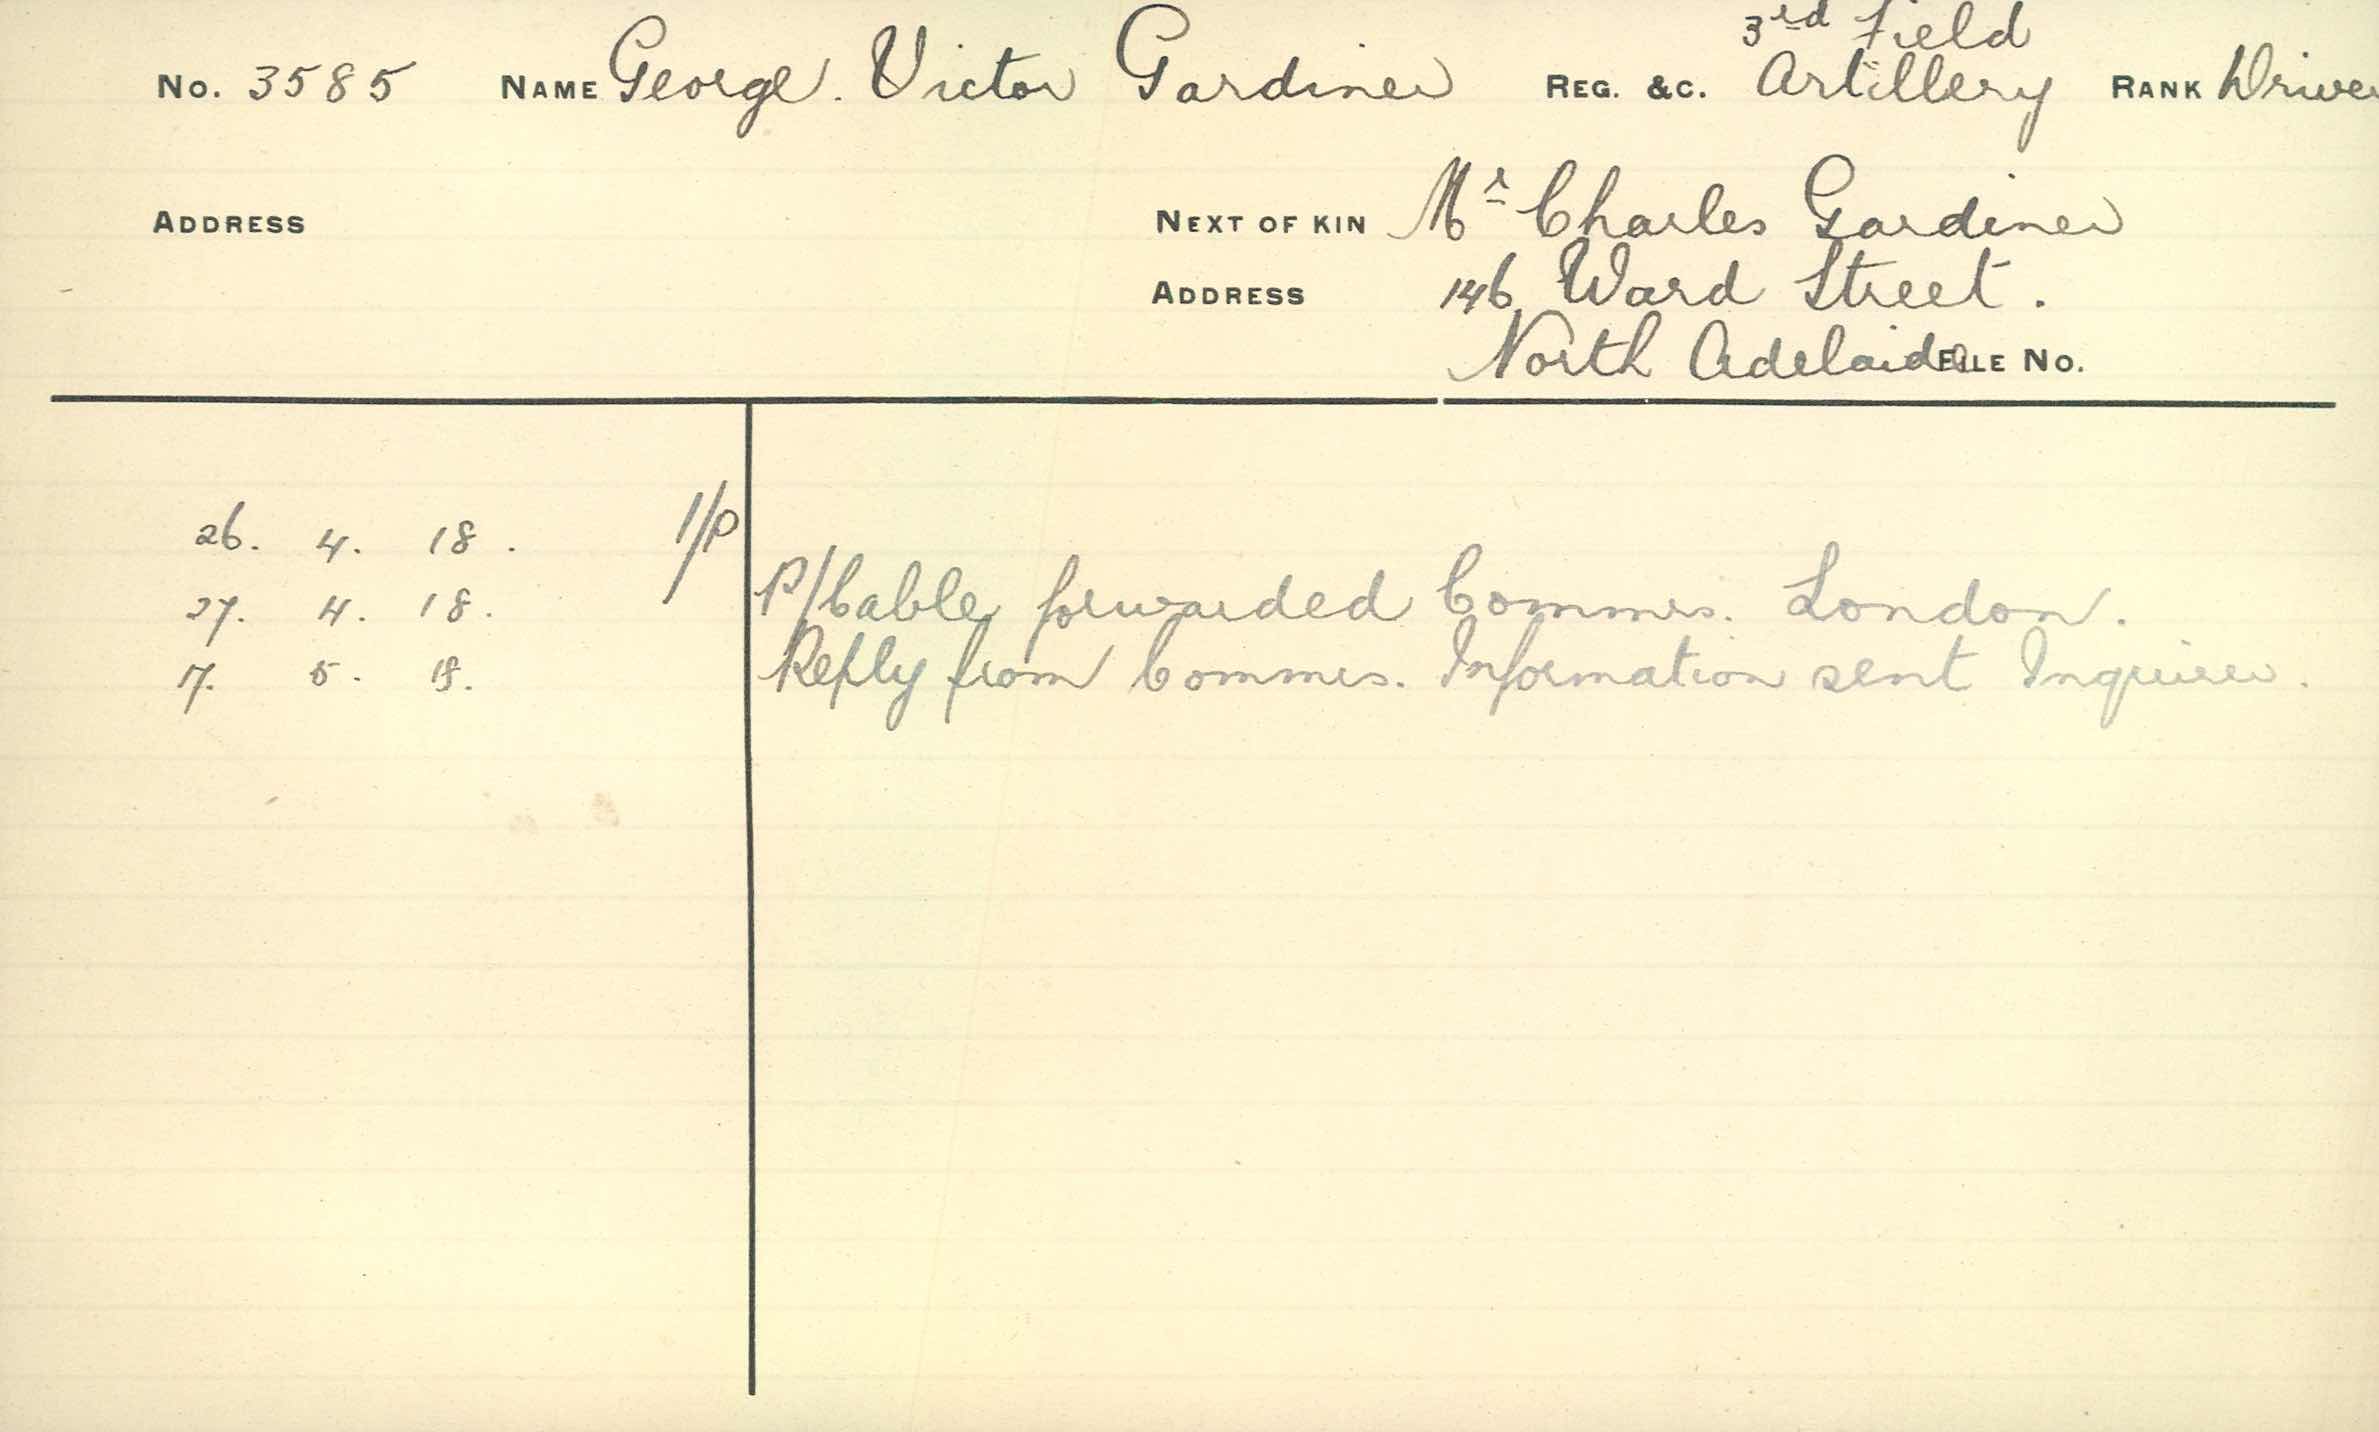 3rd Field
No. 3585 NAME George. Victor Gardiner REG. &C. Artillery RANK Driver
ADDRESS NEXT OF KIN Mr Charles Gardiner
ADDRESS 146 Ward Street.
North Adelaide FILE No.
26. 4. 18. I/P
27. 4. 18. P/Cable forwarded Commrs. London.
17. 5. 18. Reply from Commrs. Information sent Inquirer.